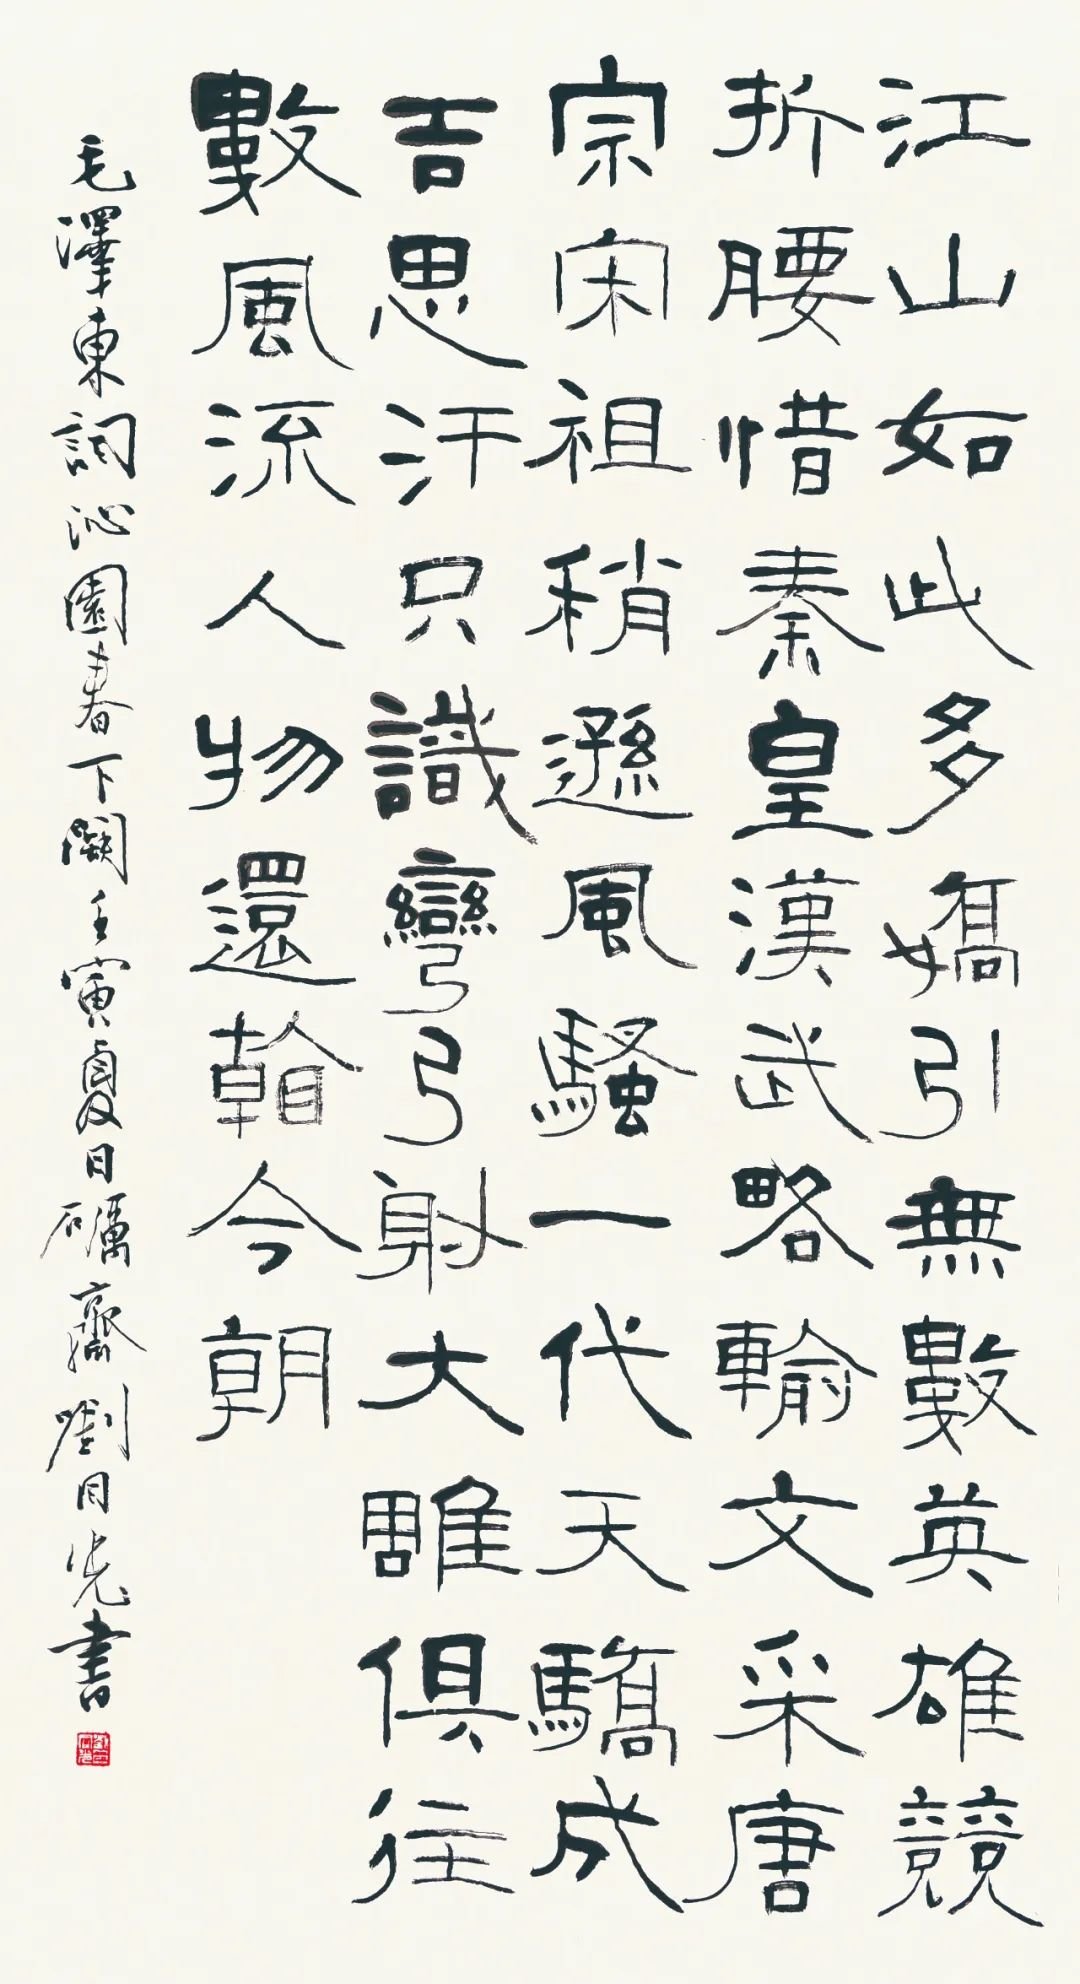 江山如此多嬌引無數英雄競
折腰惜秦皇漢武略輸文采唐
宗宋祖稍遜風騷一代天驕成
吉思汗只識彎弓射大雕俱往
數風流人物還看今朝
毛澤東詞沁園春下闋壬寅夏日礪齋劉書